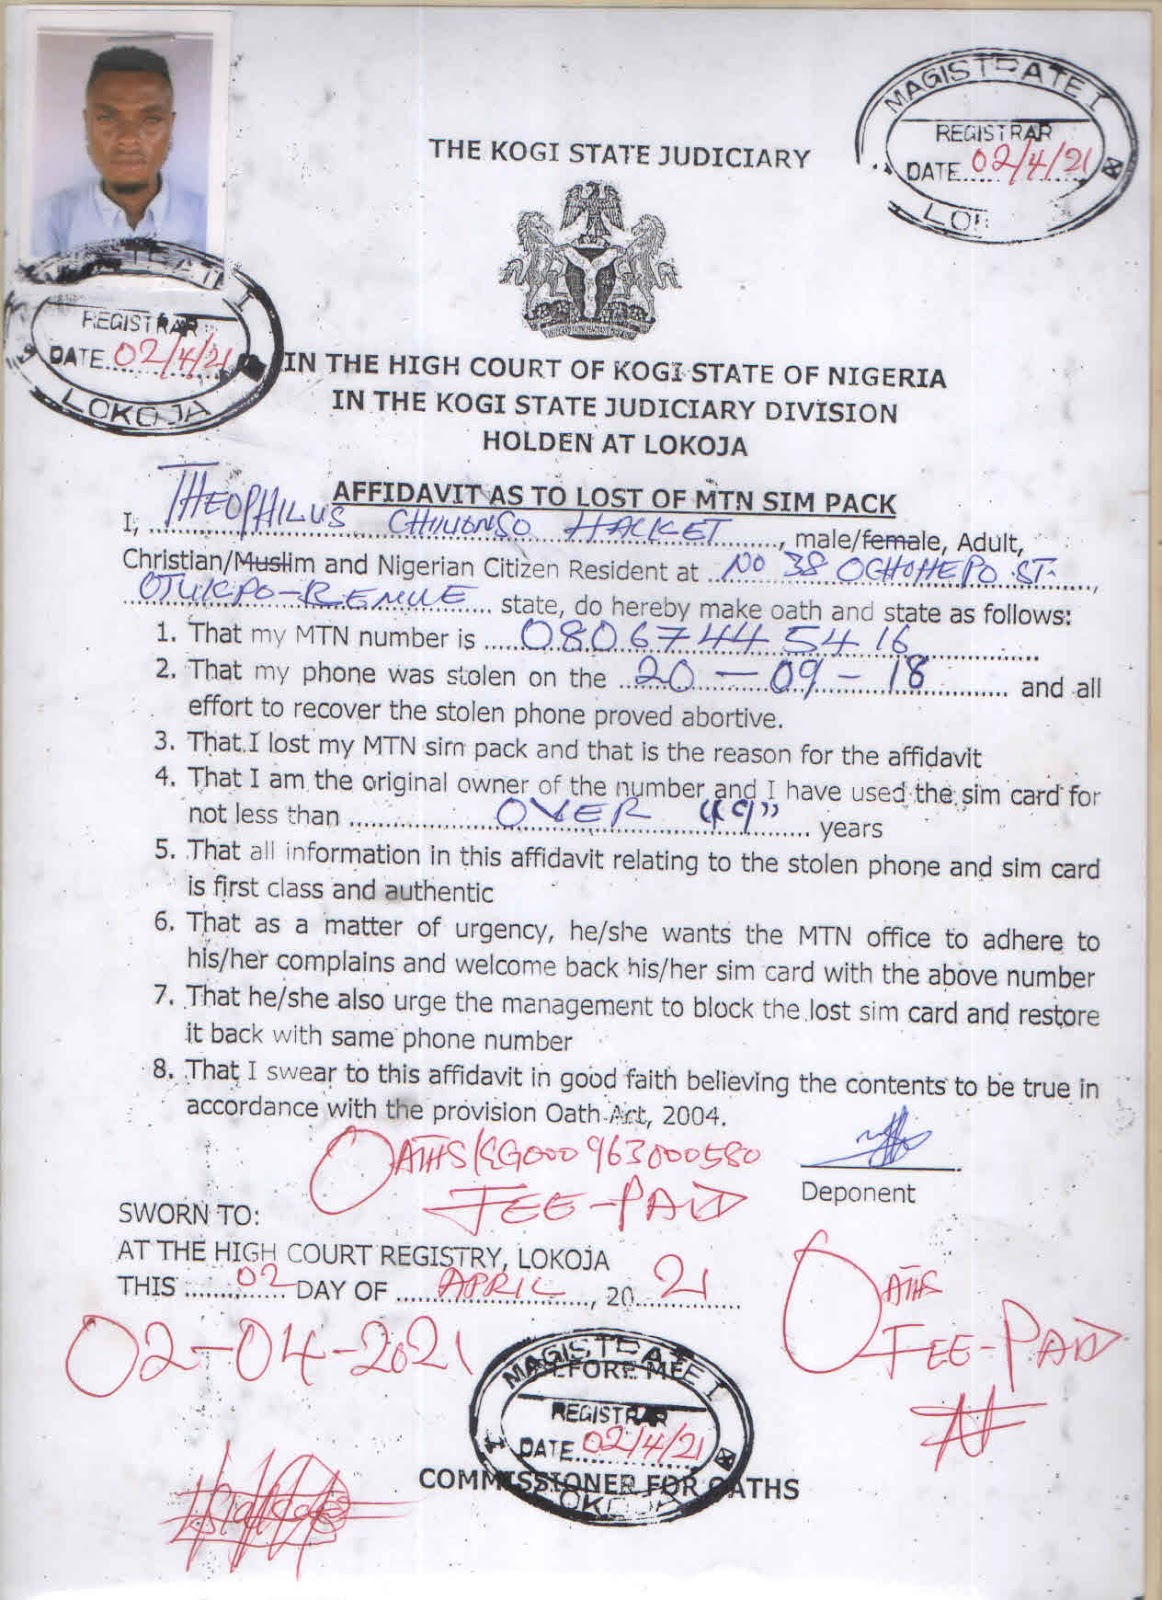 MAGISTRATE I
REGISTRAR
DATE 02/4/21
THE KOGI STATE JUDICIARY
REGISTRAR
DATE 02/4/21
LOKOJA
IN THE HIGH COURT OF KOGI STATE OF NIGERIA
IN THE KOGI STATE JUDICIARY DIVISION
HOLDEN AT LOKOJA
AFFIDAVIT AS TO LOST OF MTN SIM PACK
I, THEOPHILUS HACKET, male/female, Adult,
Christian/Muslim and Nigerian Citizen Resident at No 38 ST.,
state, do hereby make oath and state as follows:
1. That my MTN number is 08067445416
2. That my phone was stolen on the 20-09-18 and all
effort to recover the stolen phone proved abortive.
3. That I lost my MTN sim pack and that is the reason for the affidavit
4. That I am the original owner of the number and I have used the sim card for
not less than OVER "9" years
5. That all information in this affidavit relating to the stolen phone and sim card
is first class and authentic
6. That as a matter of urgency, he/she wants the MTN office to adhere to
his/her complains and welcome back his/her sim card with the above number
7. That he/she also urge the management to block the lost sim card and restore
it back with same phone number
8. That I swear to this affidavit in good faith believing the contents to be true in
accordance with the provision Oath Act, 2004.
OATHS/GG000963000580
FEE-PAID
Deponent
SWORN TO:
AT THE HIGH COURT REGISTRY, LOKOJA
THIS 02 DAY OF APRIL, 2021
OATHS
FEE-PAID
02-04-2021
MAGISTRATE I
BEFORE ME
REGISTRAR
DATE 02/4/21
COMMISSIONER FOR OATHS
LOKOJA